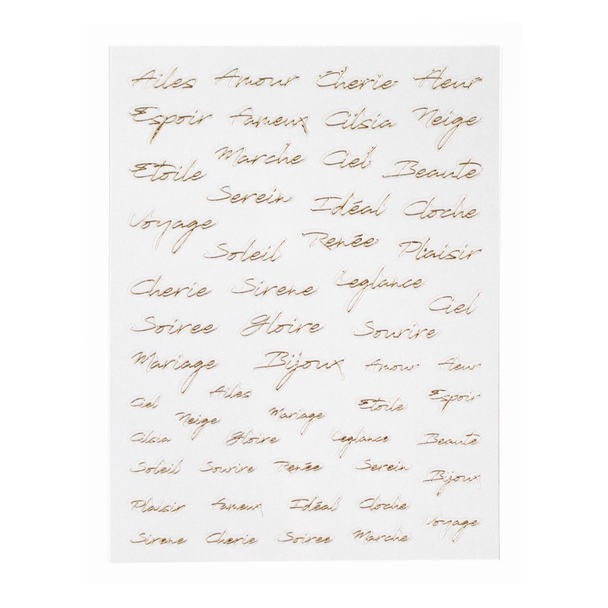 Ailes Amour Cherie Fleur
Espoir Fameux Cilsia Neige
Etoile Marche Ciel Beaute
Serein Idéal Cloche
Voyage Soleil Renée Plaisir
Cherie Sirene Leglance Ciel
Soiree Gloire Sourire
Mariage Bijoux Amour Fleur
Ciel Ailes Mariage Etoile Espoir
Neige
Cilsia Gloire Leglance Beaute
Soleil Sourire Renée Serein Bijoux
Plaisir Fameux Idéal Cloche
Voyage
Sirene Cherie Soiree Marche